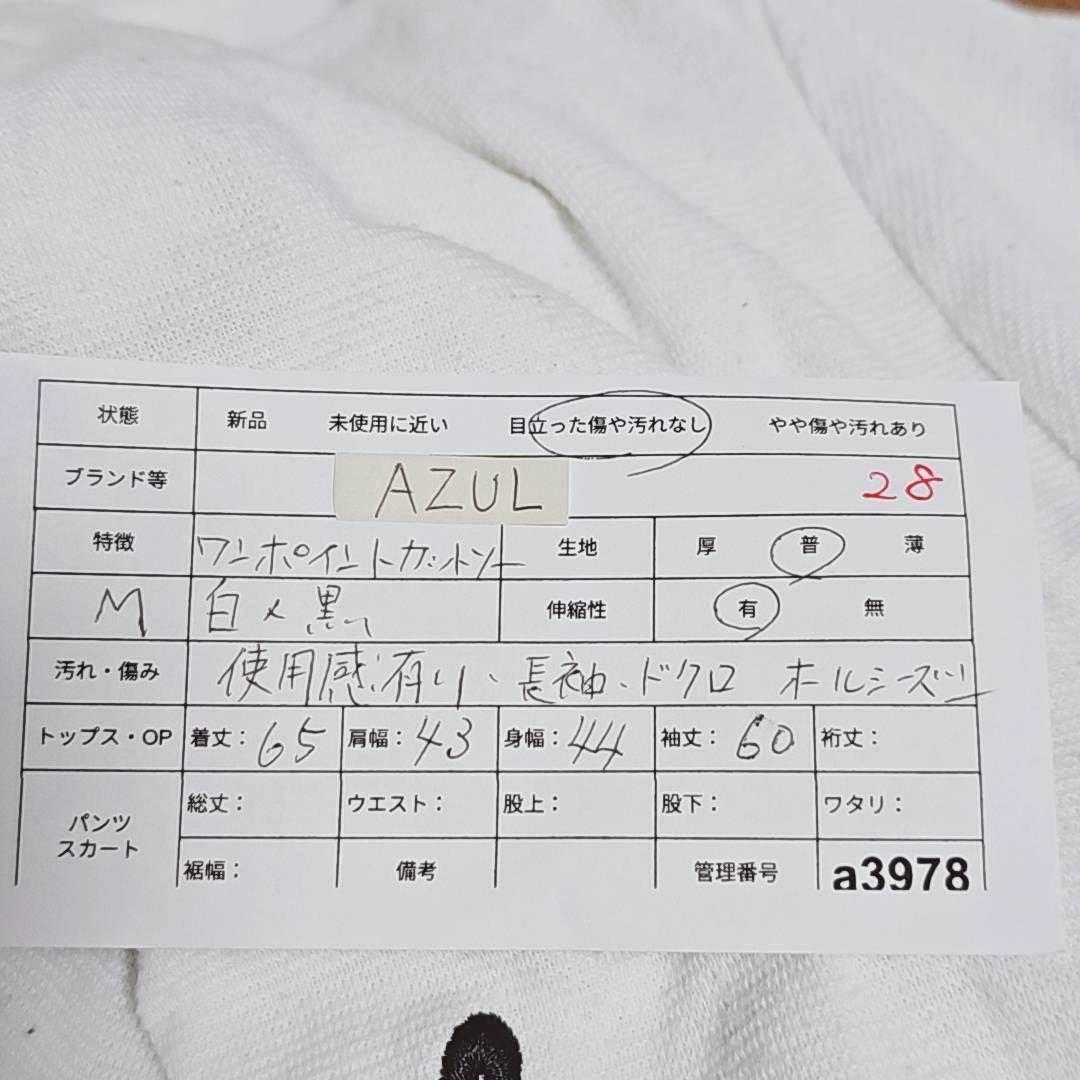 状態 新品 未使用に近い 目立った傷や汚れなし やや傷や汚れあり
ブランド等 AZUL 28
特徴 ワンポイントカットソー 生地 厚 普 薄
M 白×黒 伸縮性 有 無
汚れ・傷み 使用感有り、長袖、ドクロ オールシーズン
トップス・OP 着丈: 65 肩幅: 43 身幅: 44 袖丈: 60 裄丈:
パンツ スカート 総丈: ウエスト: 股上: 股下: ワタリ:
裾幅: 備考 管理番号 a3978